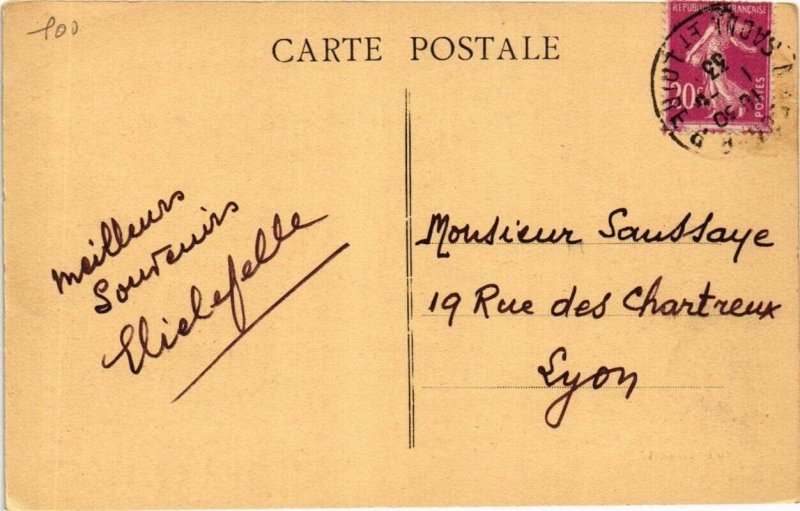 100
CARTE POSTALE
REPUBLIQUE FRANÇAISE
20c
POSTES
33
meilleurs
Souvenirs
Monsieur Saussaye
19 Rue des Chartreux
Lyon